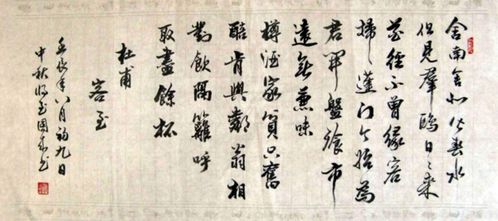 舍南舍北皆春水
但見羣鷗日々來
花徑不曾緣客
掃蓬門今始為
君開盤飧市
遠無兼味
樽酒家貧只舊
醅肯與鄰翁相
對飲隔籬呼
取盡餘杯
杜甫
客至
壬辰年八月初九日
中秋